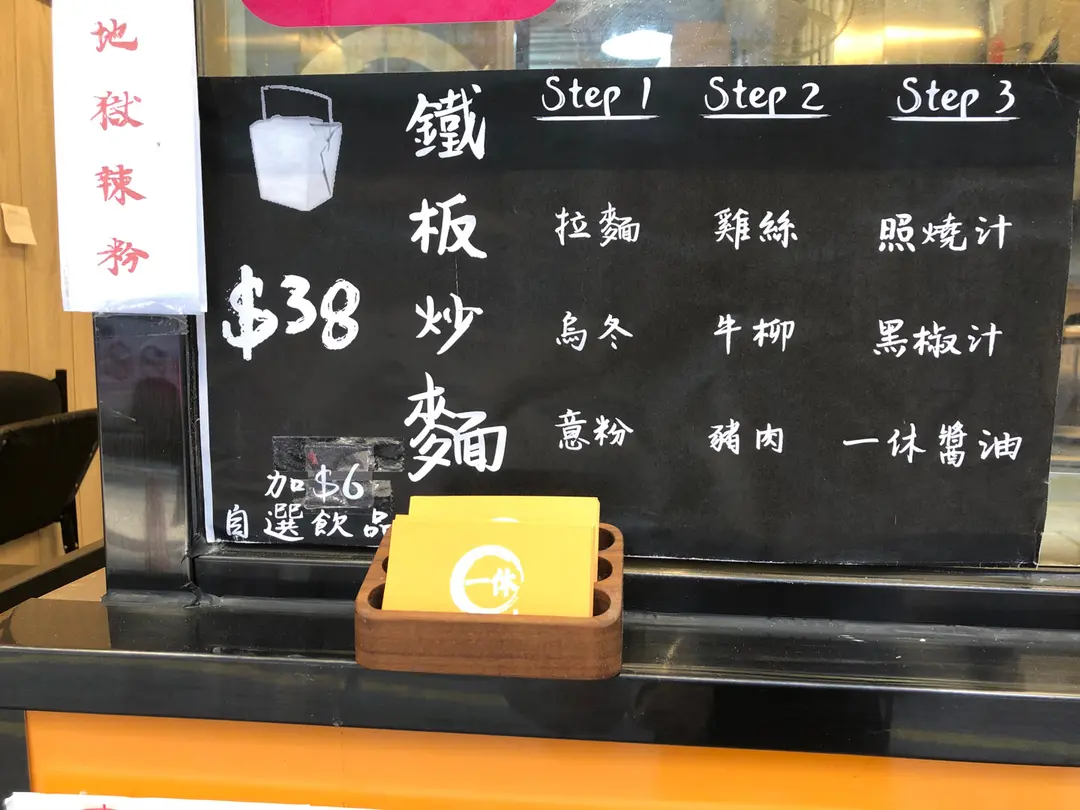 地獄辣粉
$38
加$6
自選飲品
鐵板炒麵
Step 1
拉麵
烏冬
意粉
Step 2
雞絲
牛柳
豬肉
Step 3
照燒汁
黑椒汁
一休醬油
一休